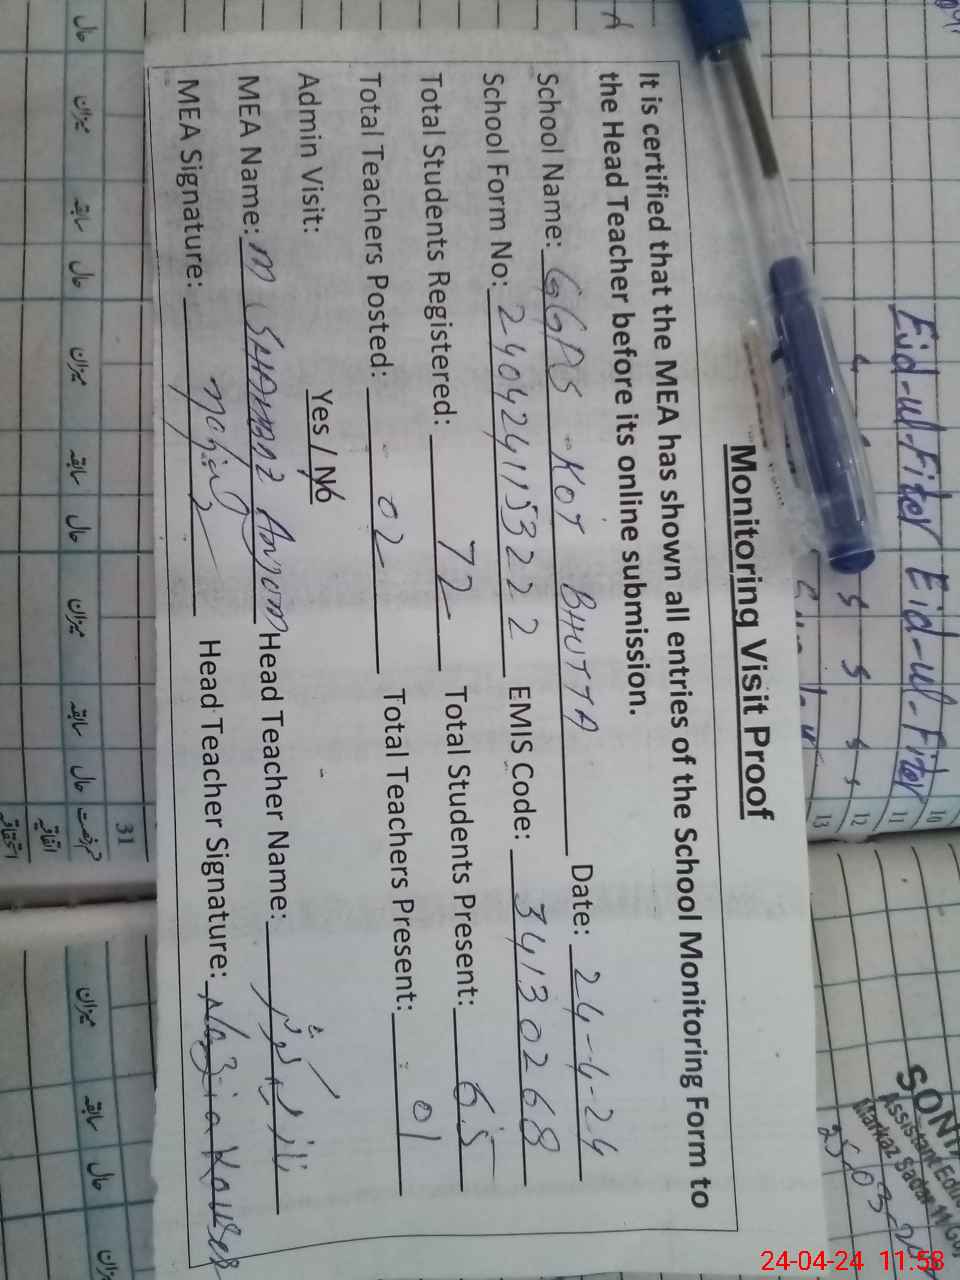 Monitoring Visit Proof
It is certified that the MEA has shown all entries of the School Monitoring Form to
the Head Teacher before its online submission.
School Name: GGPS KOT BHUTTA Date: 24-4-24
School Form No: 2404241153222 EMIS Code: 34130268
Total Students Registered: 72 Total Students Present: 65
Total Teachers Posted: 02 Total Teachers Present: 01
Admin Visit: Yes / No
MEA Name: M SHAHBAZ Anjum Head Teacher Name: نازیہ کوثر
MEA Signature: Head Teacher Signature: Nazia Kouser
Eid-ul-Fiter Eid-ul-Fiter
10
11
12
13
31
SONI
Assistant Educ
Markaz Sadar
25-03-2
حال میزان سابقہ حال میزان سابقہ حال میزان سابقہ حال
میزان سابقہ حال میزان
24-04-24 11:58